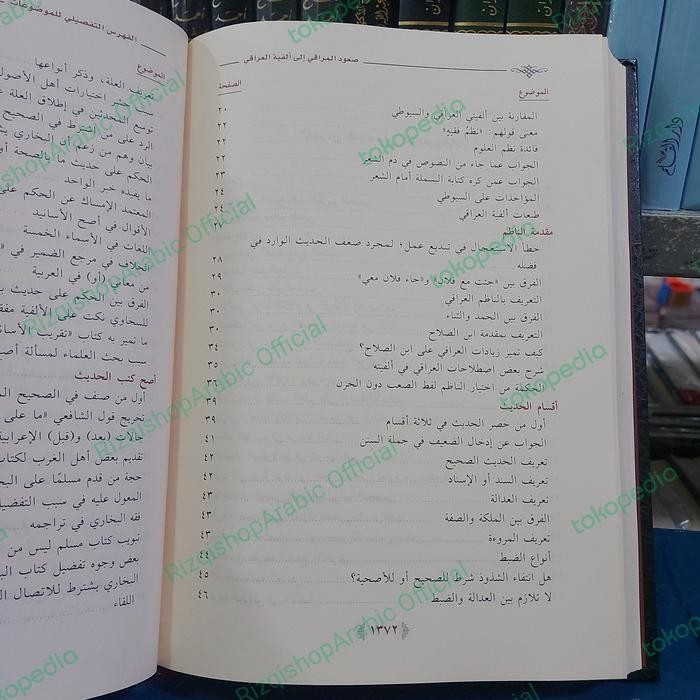 صعود المراقي إلى ألفية العراقي
الموضوع الصفحة
المقارنة بين ألفيتي العراقي والسيوطي ٢٠
معنى قولهم: «نظمُ فقيهٍ» ٢٢
فائدة نظم العلوم ٢٢
الجواب عما جاء من النصوص في ذم الشعر ٢٢
الجواب عمن كره كتابة البسملة أمام الشعر ٢٣
المؤاخذات على السيوطي ٢٤
طبعات ألفية العراقي ٢٤
مقدمة الناظم ٢٧
خطأ الاستعجال في تبديع عمل؛ لمجرد ضعف الحديث الوارد في
فضله ٢٨
الفرق بين «جئت مع فلان» و«جاء فلان معي» ٢٩
التعريف بالناظم العراقي ٣٠
الفرق بين الحمد والثناء ٣٠
التعريف بمقدمة ابن الصلاح
كيف تميز زيادات العراقي على ابن الصلاح؟ ٣٤
شرح بعض اصطلاحات العراقي في ألفيته ٣٥
الحكمة من اختيار الناظم لفظ الصعب دون الحزن ٣٦
أقسام الحديث ٣٩
أول من حصر الحديث في ثلاثة أقسام ٣٩
الجواب عن إدخال الضعيف في جملة السنن ٤١
تعريف الحديث الصحيح ٤٢
تعريف السند أو الإسناد ٤٢
تعريف العدالة ٤٣
الفرق بين الملكة والصفة ٤٣
تعريف المروءة ٤٣
أنواع الضبط ٤٤
هل انتفاء الشذوذ شرط للصحيح أو للأصحية؟ ٤٥
لا تلازم بين العدالة والضبط ٤٦
١٣٧٢
الفهرس التفصيلي للموضوعات
الموضوع
تعريف العلة، وذكر أنواعها
اختيارات أهل الأصول
توسع المحدثين في إطلاق العلة
الرد على من اشترط في الصحيح
بيان وهم من زعم أن البخاري
الحكم على حديث ما بالصحة
ما يفيده خبر الواحد
المعتمد الإمساك عن الحكم على
الأقوال في أصح الأسانيد
اللغات في الأسماء الخمسة
الخلاف في مرجع الضمير في
من معاني (أو) في العربية
الفرق بين الحكم على حديث
للسخاوي نكت على الألفية
ما تميز به كتاب «تقريب
سبب بحث العلماء لمسألة
أصح كتب الحديث
أول من صنف في الصحيح
تخريج قول الشافعي «ما على
حالات (بعد) و(قبل) الإعرابية
تقديم بعض أهل الغرب لكتاب
حجة من قدم مسلمًا على
المعول عليه في سبب التفضيل
فقه البخاري في تراجمه
تبويب كتاب مسلم ليس من
بعض وجوه تفضيل كتاب
البخاري يشترط للاتصال
اللقاء
RizqishopArabic Official
tokopedia